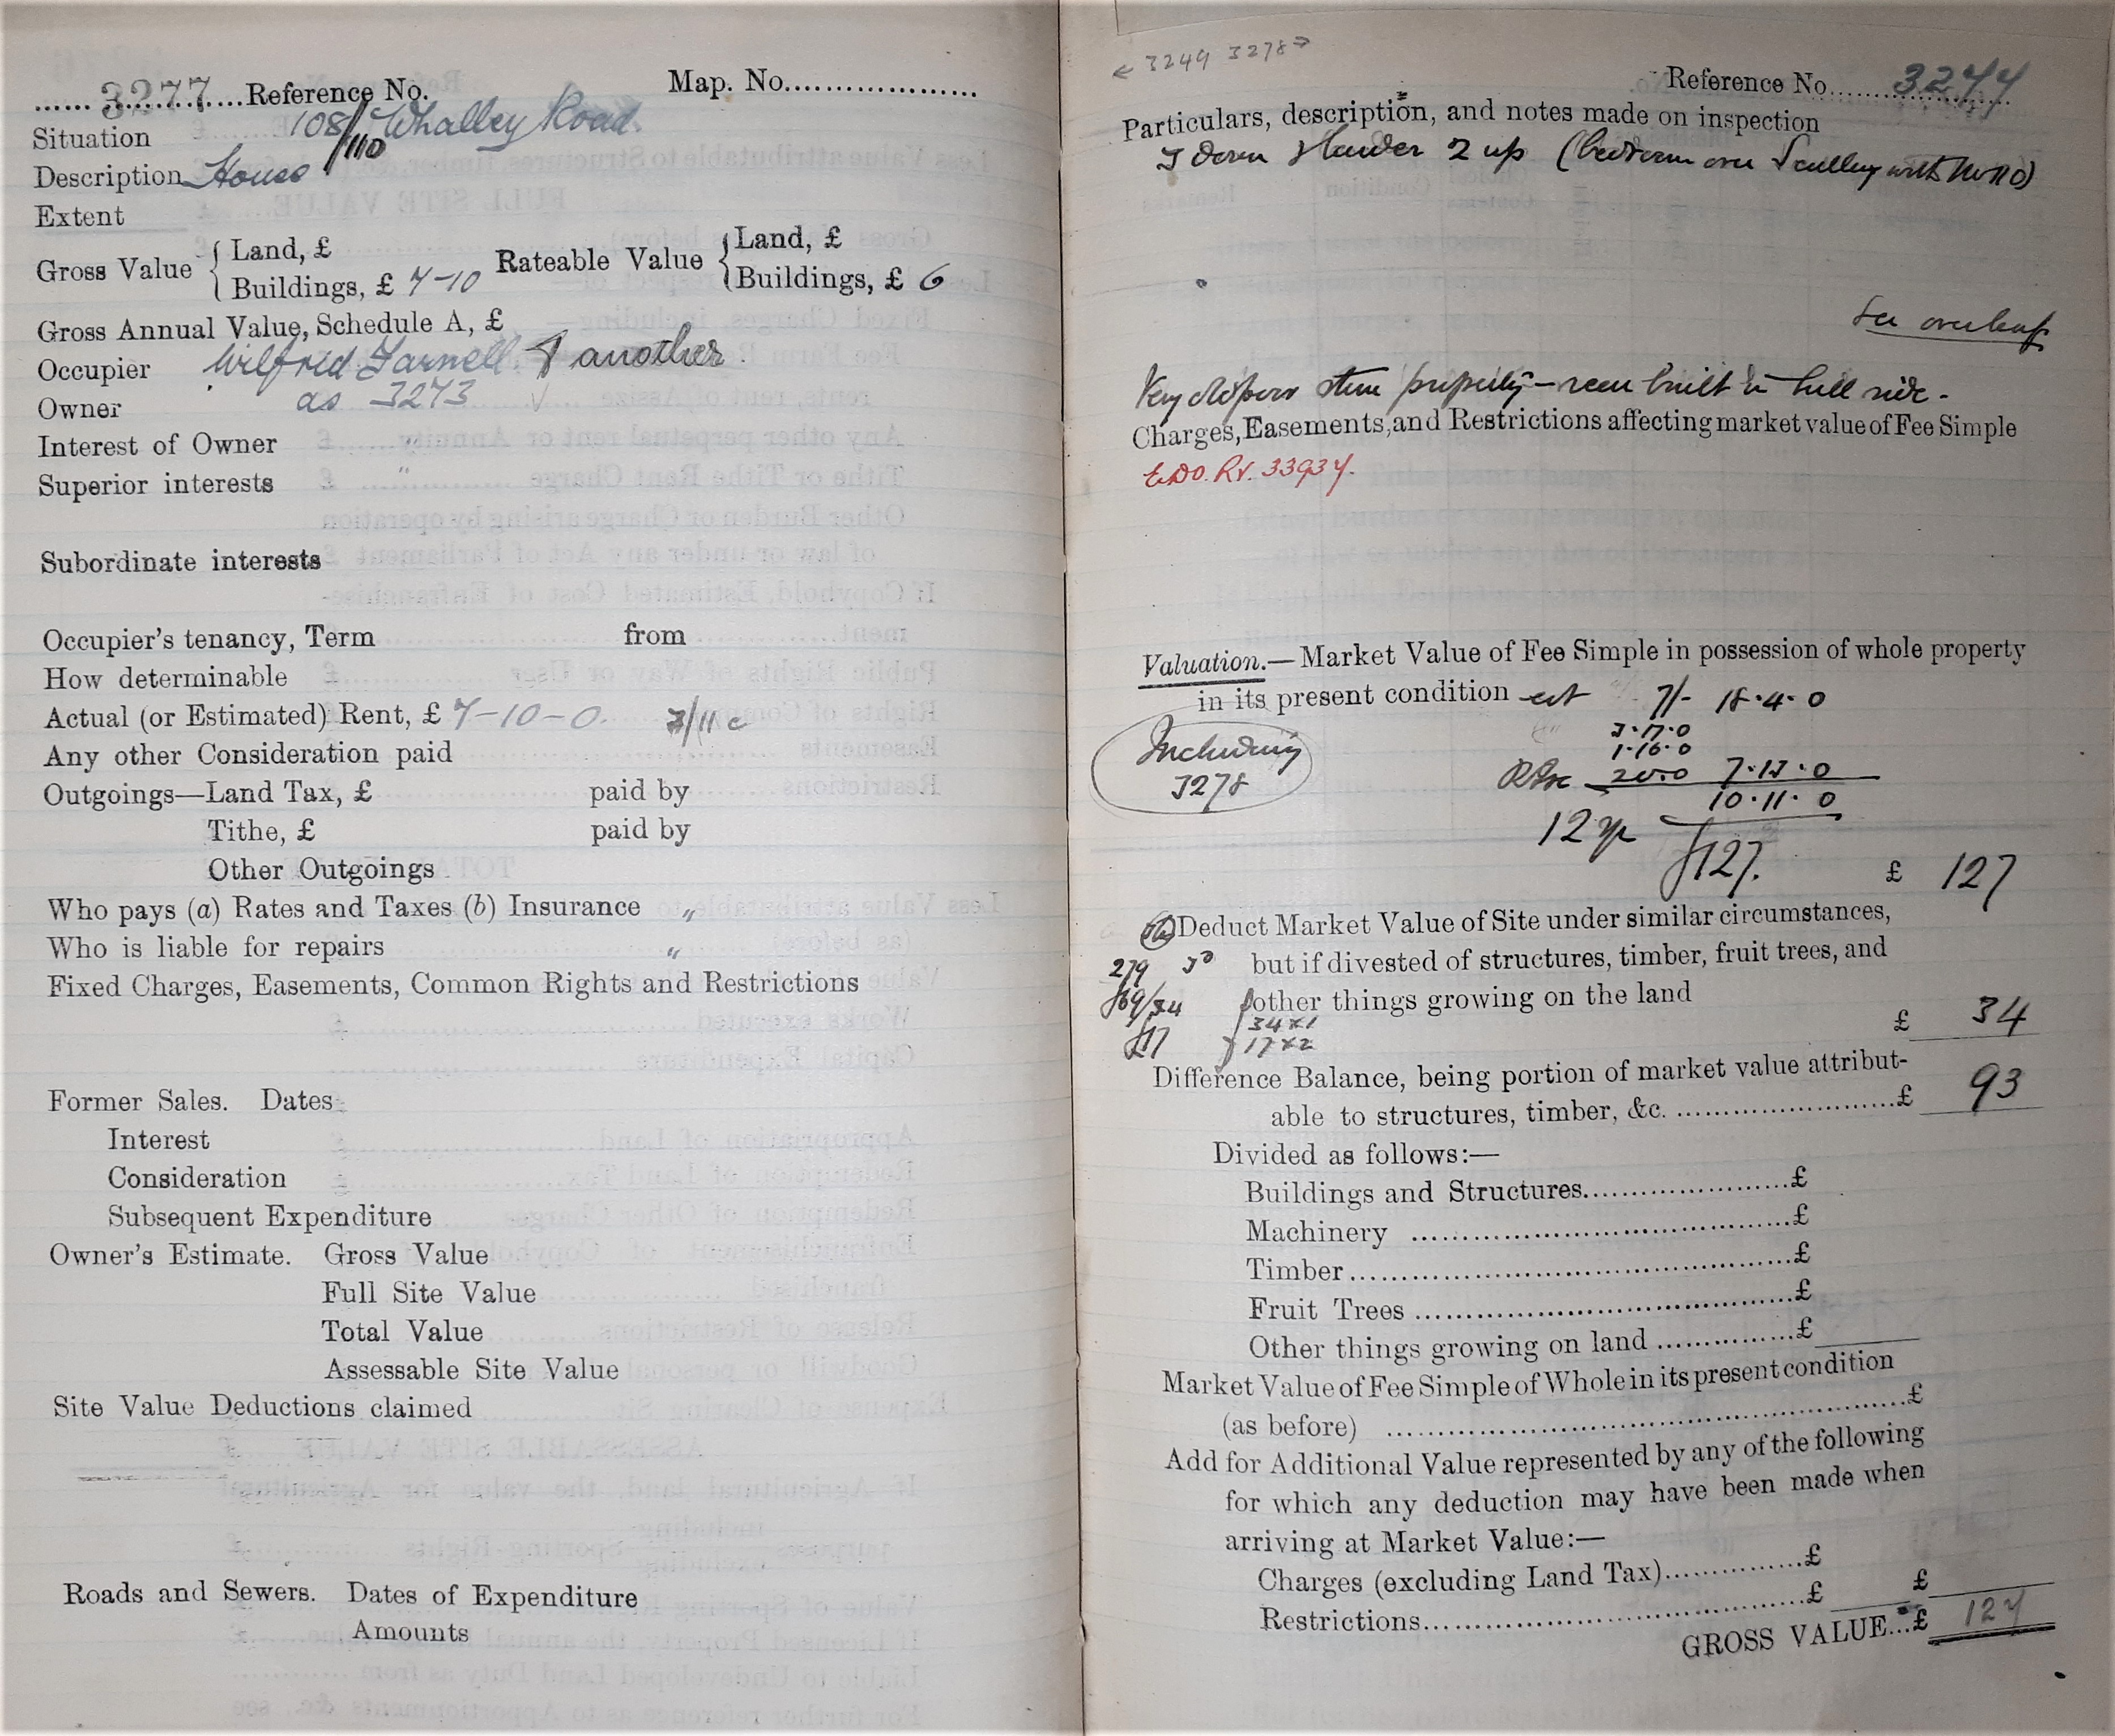 3277 Reference No. Map. No.
Situation 108/110 Whalley Road
Description House
Extent
Gross Value { Land, £
Buildings, £ 7-10
Rateable Value { Land, £
Buildings, £ 6
Gross Annual Value, Schedule A, £
Occupier Wilfred Farnell & another
Owner as 3273
Interest of Owner
Superior interests
Subordinate interests
Occupier's tenancy, Term from
How determinable
Actual (or Estimated) Rent, £ 7-10-0. 3/11 c
Any other Consideration paid
Outgoings—Land Tax, £ paid by
Tithe, £ paid by
Other Outgoings
Who pays (a) Rates and Taxes (b) Insurance "
Who is liable for repairs "
Fixed Charges, Easements, Common Rights and Restrictions
Former Sales. Dates
Interest
Consideration
Subsequent Expenditure
Owner's Estimate. Gross Value
Full Site Value
Total Value
Assessable Site Value
Site Value Deductions claimed
Roads and Sewers. Dates of Expenditure
Amounts
← 3249 3278 →
Reference No. 3277
Particulars, description, and notes made on inspection
3 down 2 up (bedroom over Sculley with No 110)
See overleaf
Very old poor stone property - rear built in hill side.
Charges, Easements, and Restrictions affecting market value of Fee Simple
E.DO. Rv. 33937.
Valuation.— Market Value of Fee Simple in possession of whole property
in its present condition est 7/- 18.4.0
3.17.0
1.16.0
Including
3278
2.0.0 7.13.0
10.11.0
12 yp
£127.
£ 127
Deduct Market Value of Site under similar circumstances,
279 3D but if divested of structures, timber, fruit trees, and
£69/34 other things growing on the land
34 x 1
£17 17 x 2
£ 34
Difference Balance, being portion of market value attribut-
able to structures, timber, &c. £ 93
Divided as follows:—
Buildings and Structures £
Machinery £
Timber £
Fruit Trees £
Other things growing on land £
Market Value of Fee Simple of Whole in its present condition
(as before) £
Add for Additional Value represented by any of the following
for which any deduction may have been made when
arriving at Market Value:—
Charges (excluding Land Tax) £
Restrictions £ £
GROSS VALUE...£ 127